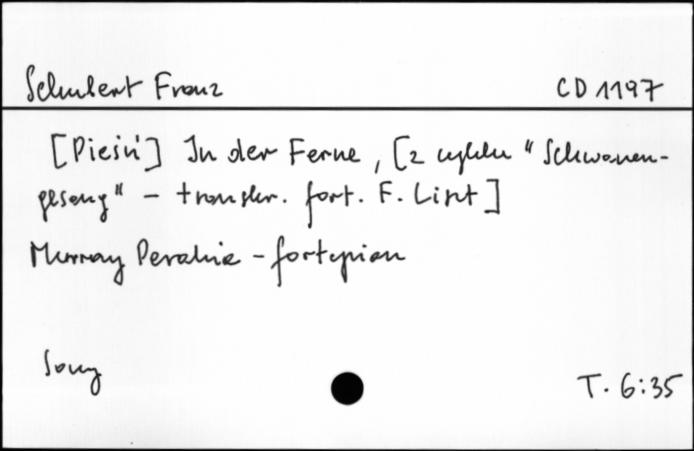 Schubert Franz CD 1197
[Pieśń] In der Ferne, [z cyklu "Schwanen-
gesang" - transkr. fort. F. Liszt]
Murray Perahia - fortepian
Sony T. 6:35